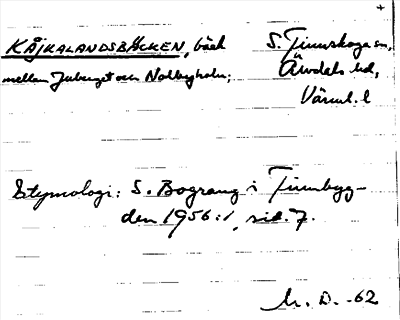 +
KÅJKALANDSBÄCKEN, bäck
S. Finnskoga sn,
mellan Juberget och Nolbyholm;
Älvdals hd,
Värml. l
Etymologi: S. Bograng i Finnbyg-
den 1956:1, sid. 7.
M. D. -62